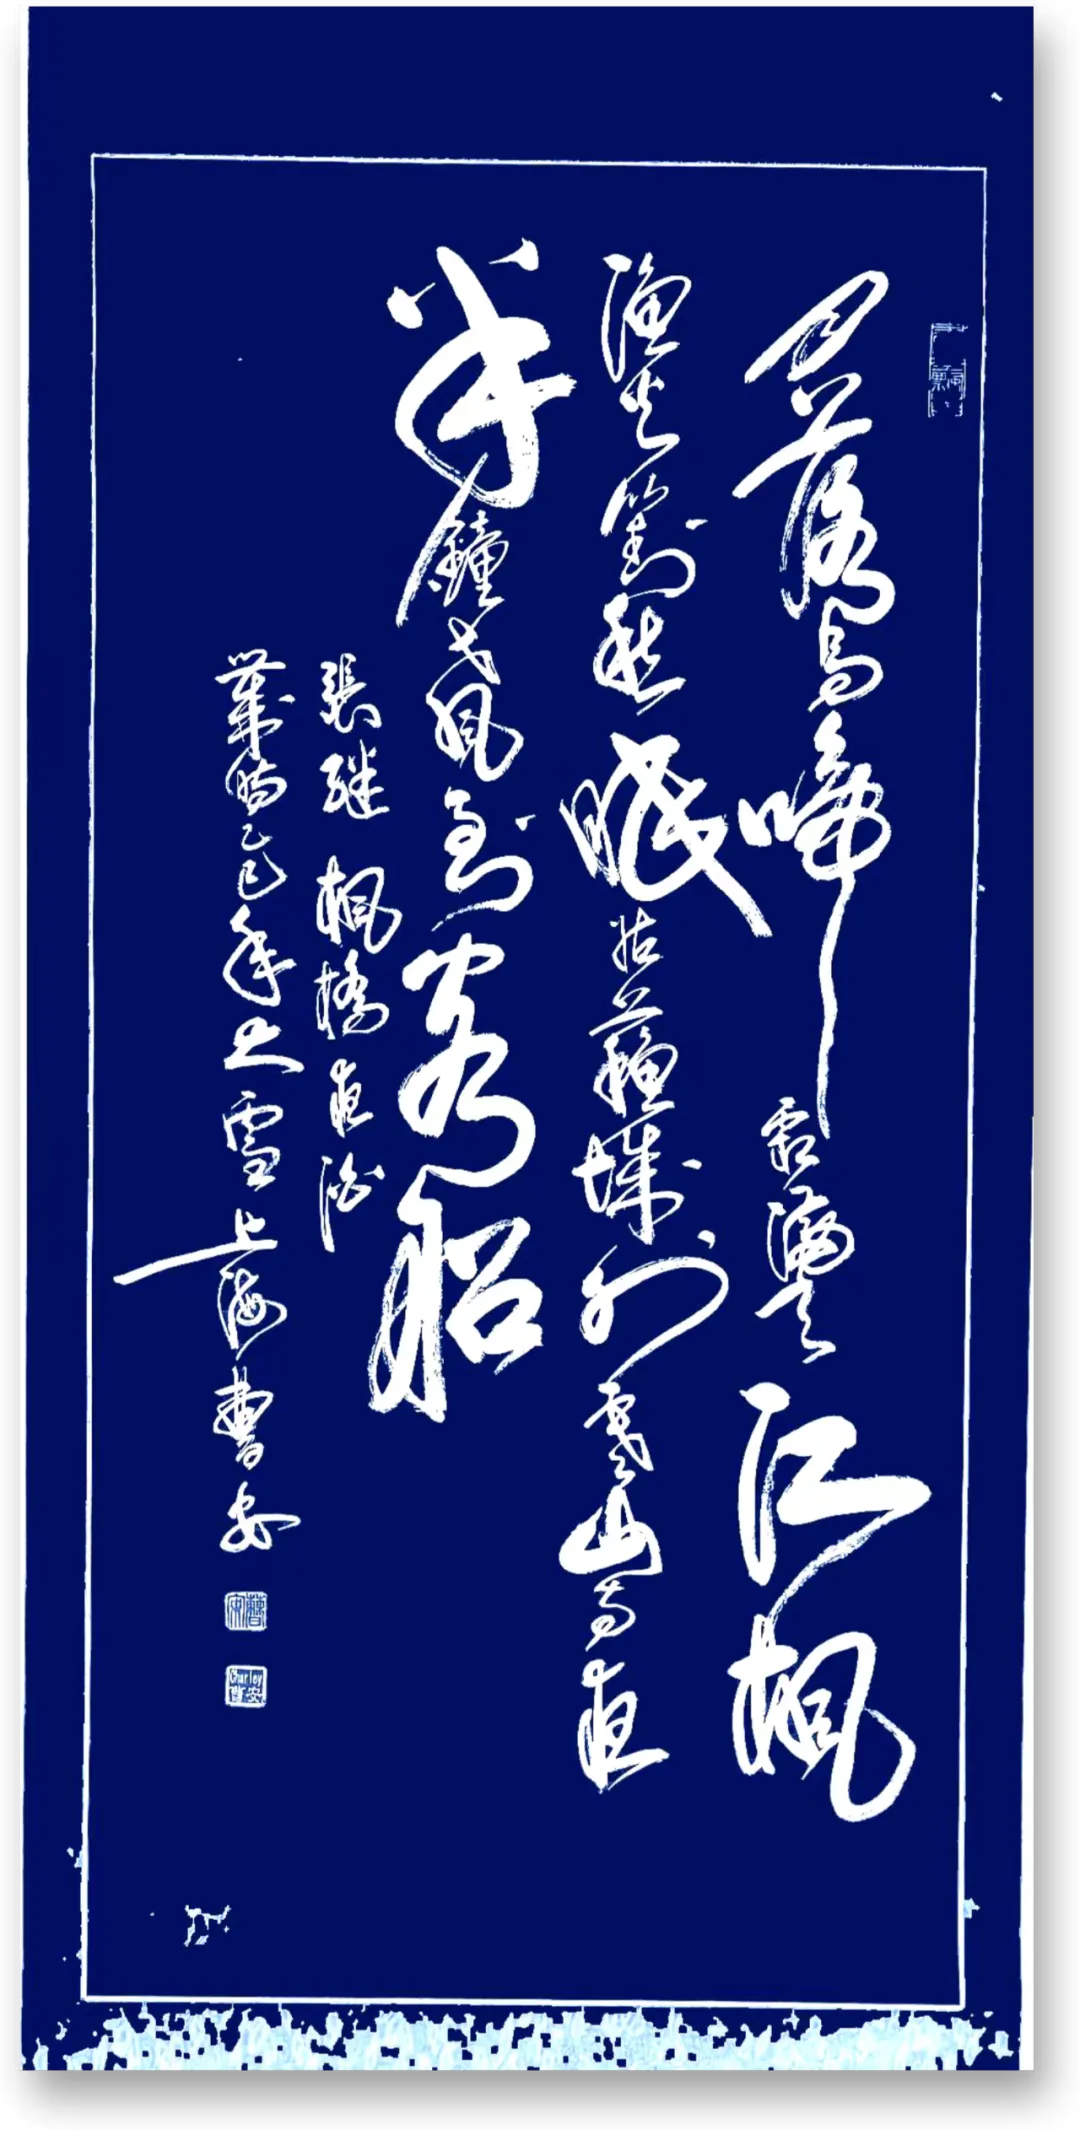 月落烏啼霜滿天江楓
漁火對愁眠姑蘇城外寒山寺夜
半鐘聲到客船
張繼 楓橋夜泊
歲時乙巳年大雪上海曹安
Charley